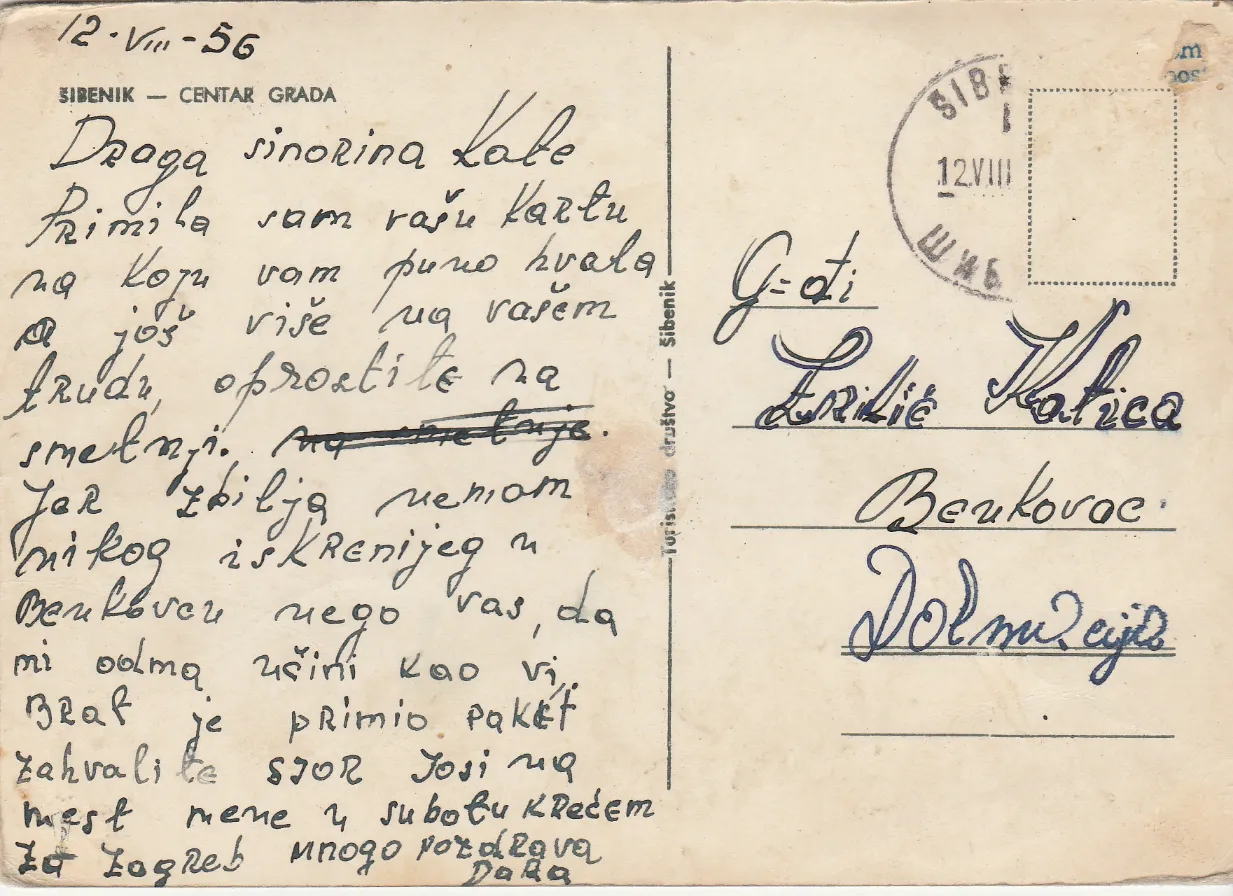 12-VIII-56
ŠIBENIK — CENTAR GRADA
Draga sinorina Kate
Primila sam vašu kartu
na koju vam puno hvala
a još više na vašem
trudu, oprostite na
smetnji. na smetnje.
Jer zbilja nemam
nikog iskrenijeg u
Benkovcu nego vas, da
mi odma učini kao vi.
Brat je primio paket
zahvalite sjor Josi na
mest mene u subotu krećem
za Zagreb mnogo pozdrava
Dara
Turističko društvo — Šibenik
ŠIBE
12.VIII
ШИБ
G-đi
Katica
Benkovac
Dalmacija